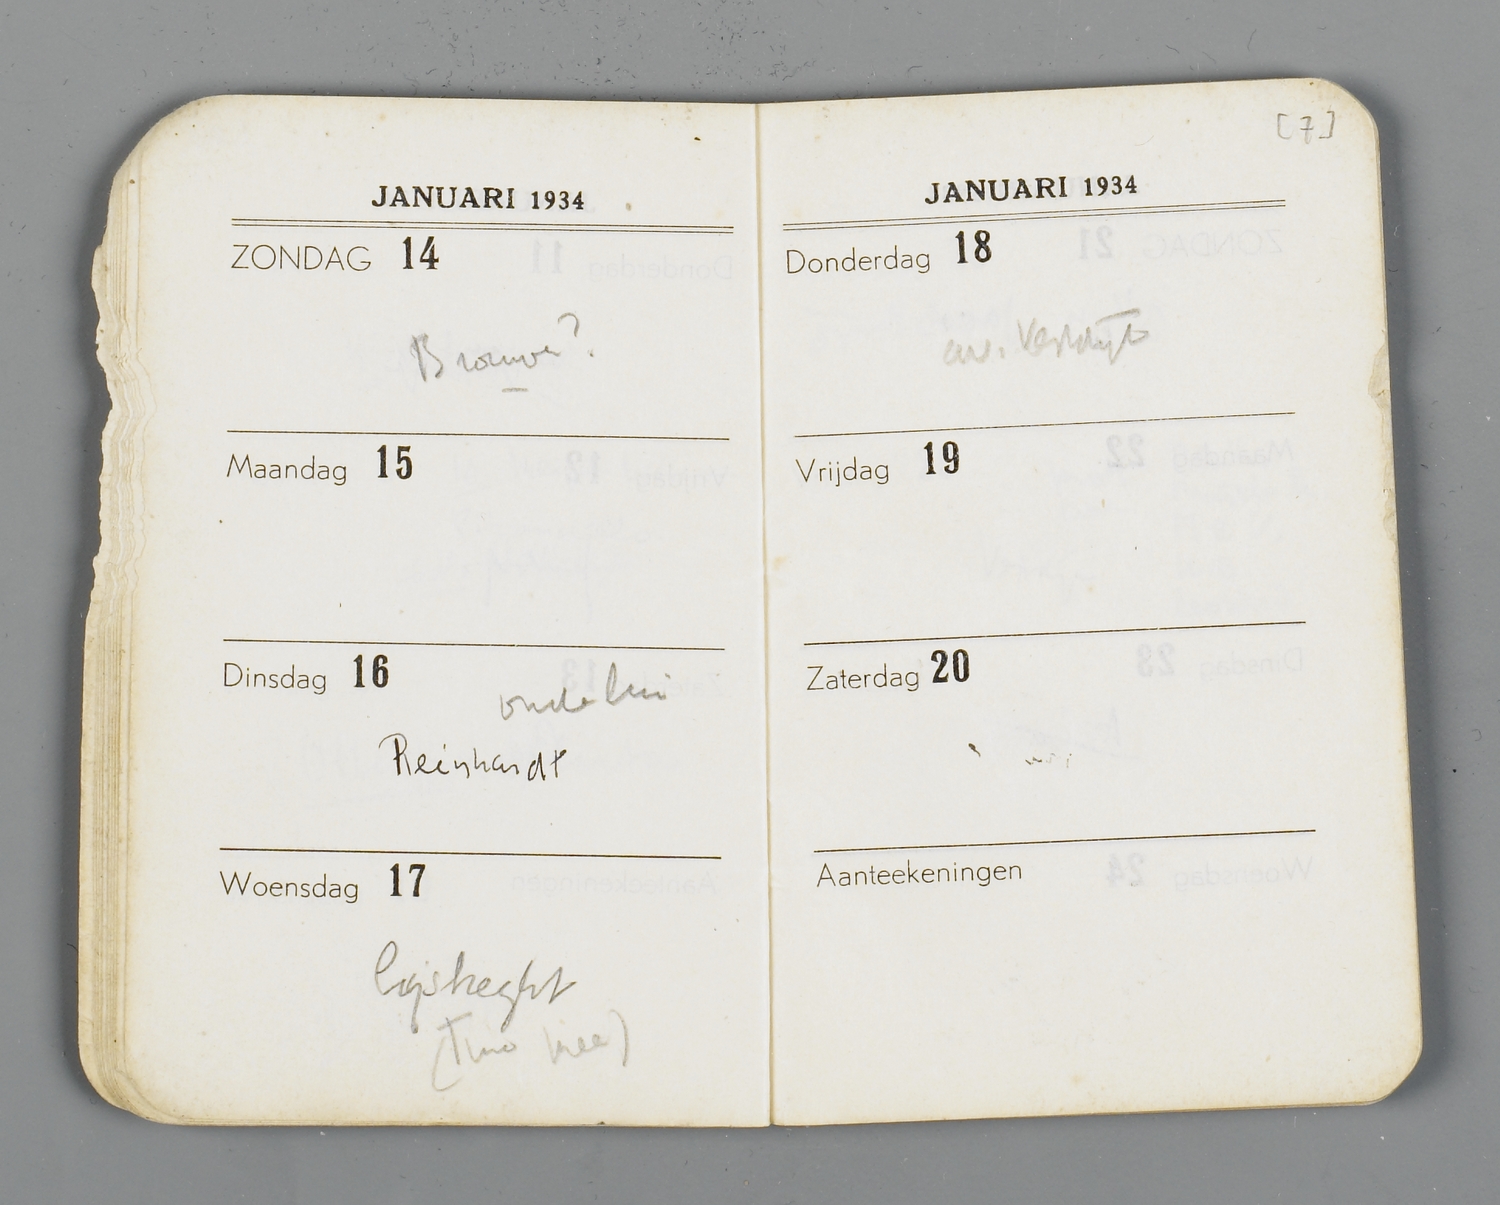 JANUARI 1934
ZONDAG 14
Brouwer?
Maandag 15
Dinsdag 16
Reinhardt
Woensdag 17
(Tino mee)
[7]
JANUARI 1934
Donderdag 18
av. Vestdijk
Vrijdag 19
Zaterdag 20
Aanteekeningen